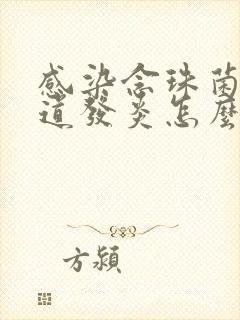 感染念珠菌
道發炎怎麼
方潁